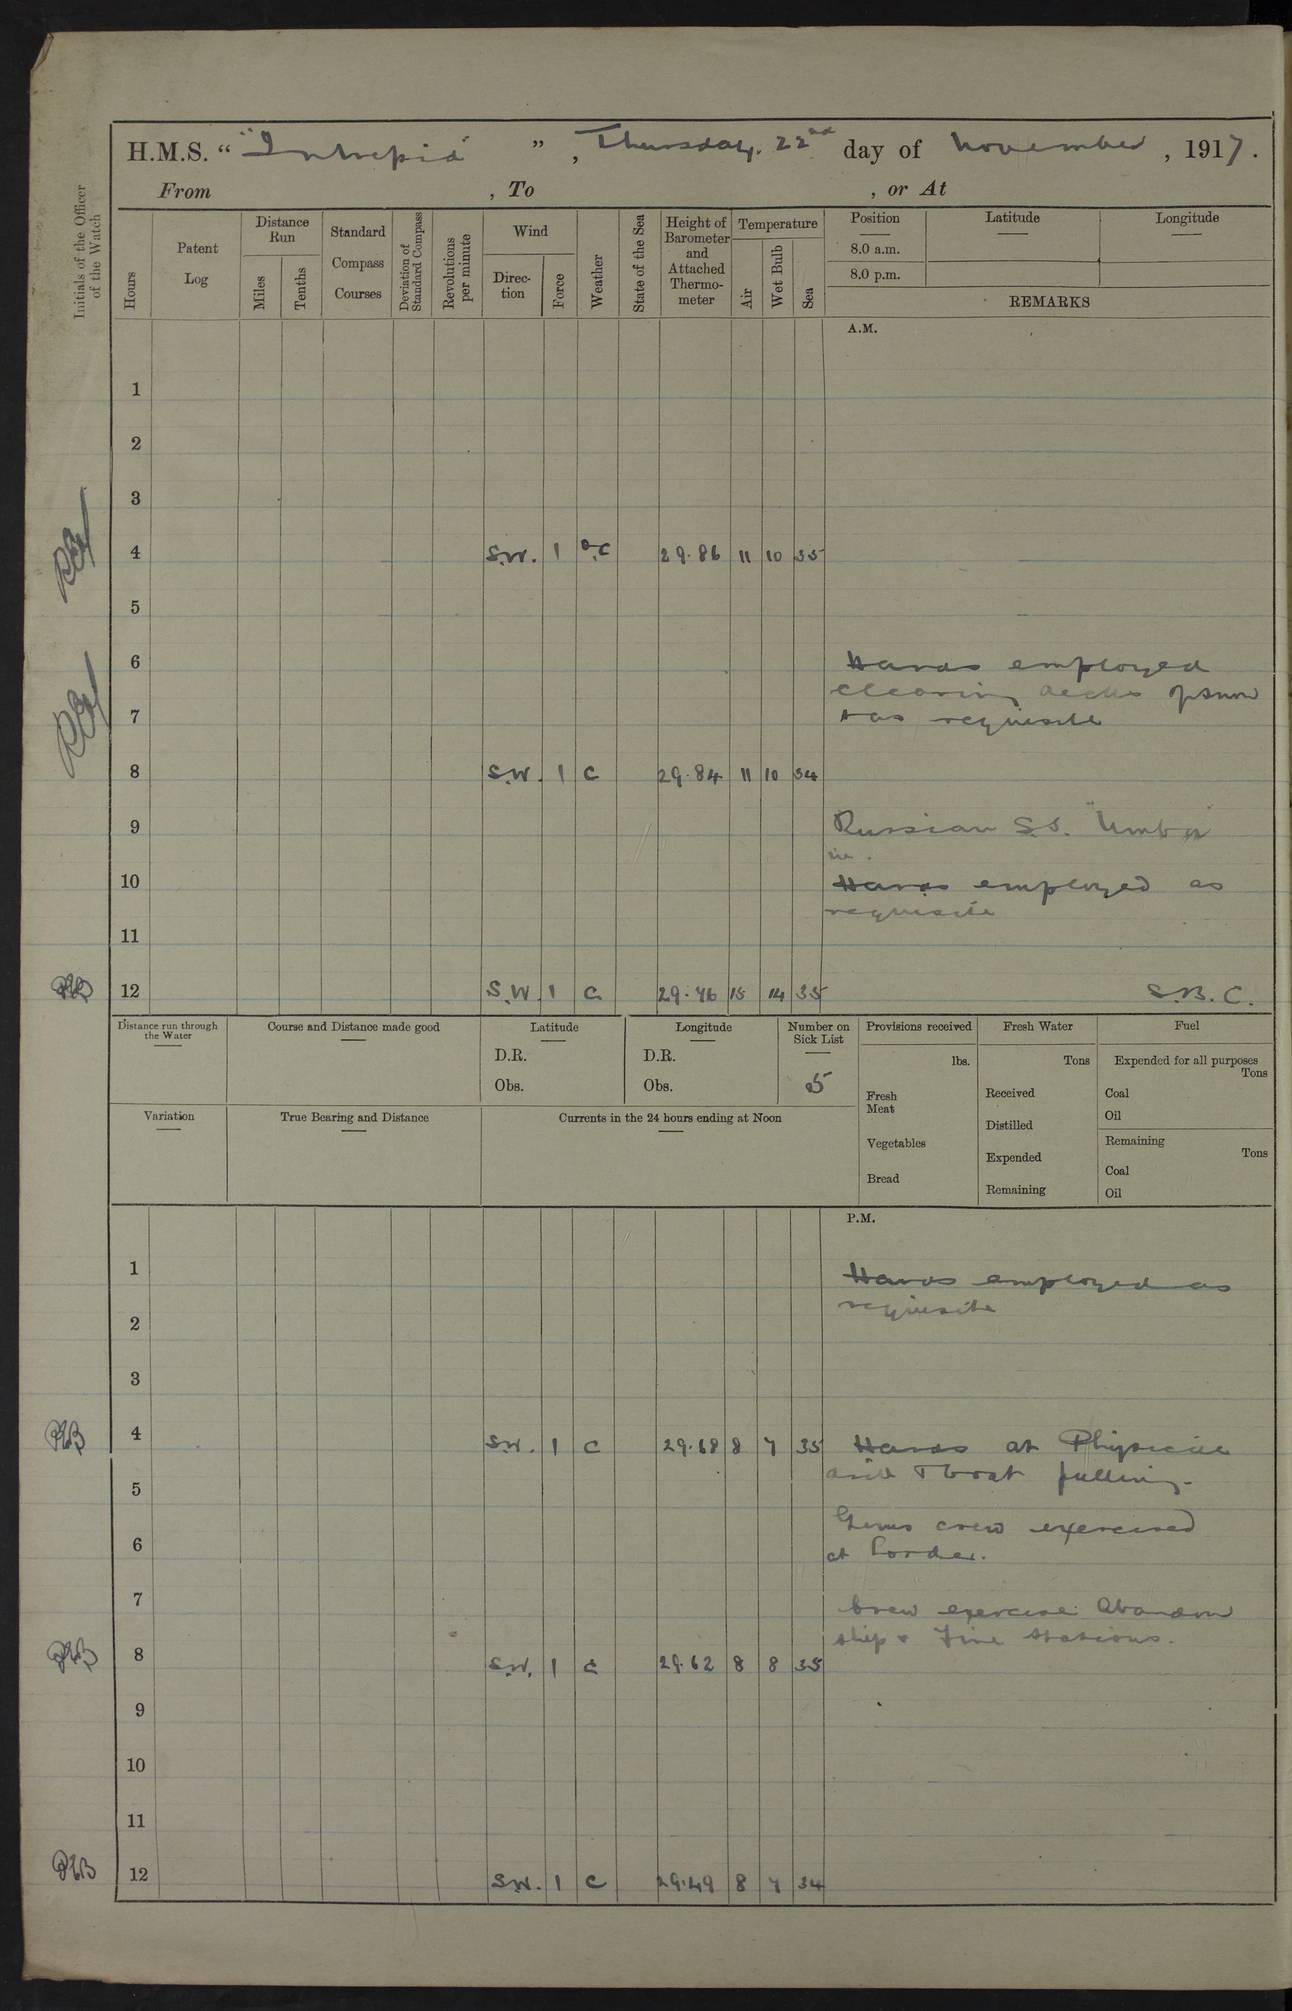 H.M.S. “ "Intrepid" ” , Thursday. 22nd day of November , 1917.
From , To , or At
Initials of the Officer of the Watch
Hours
Patent Log
Distance Run
Miles
Tenths
Standard Compass Courses
Deviation of Standard Compass
Revolutions per minute
Wind
Direc-tion
Force
Weather
State of the Sea
Height of Barometer and Attached Thermo-meter
Temperature
Air
Wet Bulb
Sea
Position Latitude Longitude
8.0 a.m.
8.0 p.m.
REMARKS
A.M.
1
2
3
4 S.W. 1 o.c 29.86 11 10 35
5
6 Hands employed
clearing decks of snow
7 & as requisite
8 S.W. 1 c 29.84 11 10 34
9 Russian S.S. "Umba"
in.
10 Hands employed as
requisite
11
12 S.W. 1 c. 29.76 15 14 35 S.B.C.
Distance run through the Water
Course and Distance made good
Latitude
D.R.
Obs.
Longitude
D.R.
Obs.
Number on Sick List
5
Provisions received
lbs.
Fresh Meat
Vegetables
Bread
Fresh Water
Tons
Received
Distilled
Expended
Remaining
Fuel
Expended for all purposes
Tons
Coal
Oil
Remaining
Tons
Coal
Oil
Variation
True Bearing and Distance
Currents in the 24 hours ending at Noon
P.M.
1 Hands employed as
requisite
2
3
4 S.W. 1 c 29.68 8 7 35 Hands at Physical
drill & boat pulling.
5
Guns crew exercised
6 at Loader.
7 Crew exercise Abandon
ship & Fire stations.
8 S.W. 1 c 29.62 8 8 35
9
10
11
12 S.W. 1 c 29.49 8 7 34